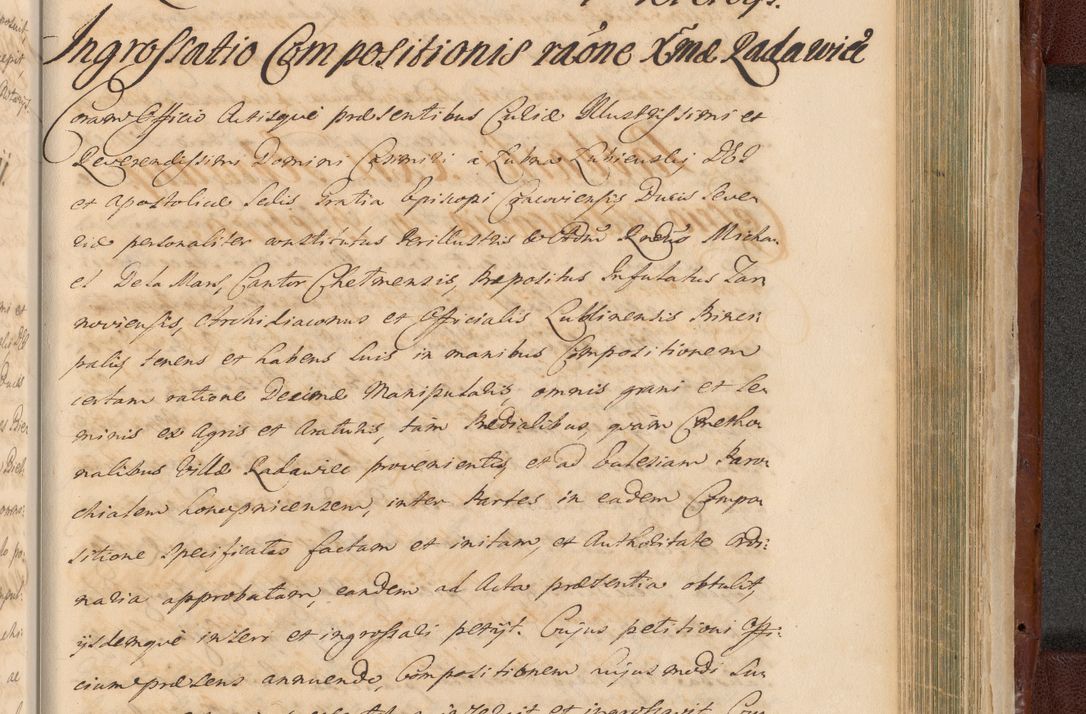 Ingrossatio Compositionis raōne Xmæ Radawicẽ
Coram Officio Actisque præsentibus Curiæ Illustrissimi et
Reverendissimi Domini Casimiri à Lubna Lubienskij DEI
et Apostolicæ Sedis Gratia Episcopi Cracoviensis, Ducis Seve-
riæ personaliter constitutus Perillustris et Adm Rndus Micha-
el De la Mars, Cantor Chelmensis, Præpositus Infulatus Tar-
noviensis, Archidiaconus et Officialis Lublinensis Princi-
palis, tenens et habens suis in manibus Compositionem
certam ratione Decimæ Manipularis, omnis grani et se-
minis ex Agris et Araturis, tàm Prædialibus, quàm Cmetho-
nalibus Villæ Radawice provenientis, et ad Ecclesiam Paro-
chialem Konopnicensem, inter Partes in eadem Compo-
sitione specificatas factam et initam, et Authoritate Ordi-
naria approbatam, eandem ad Acta præsentia obtulit,
ijsdemque inseri et ingrossari petijt. Cujus petitioni Offi-
cium præsens annuendo, Compositionem hujusmodi Su-
et ingrossavit Com